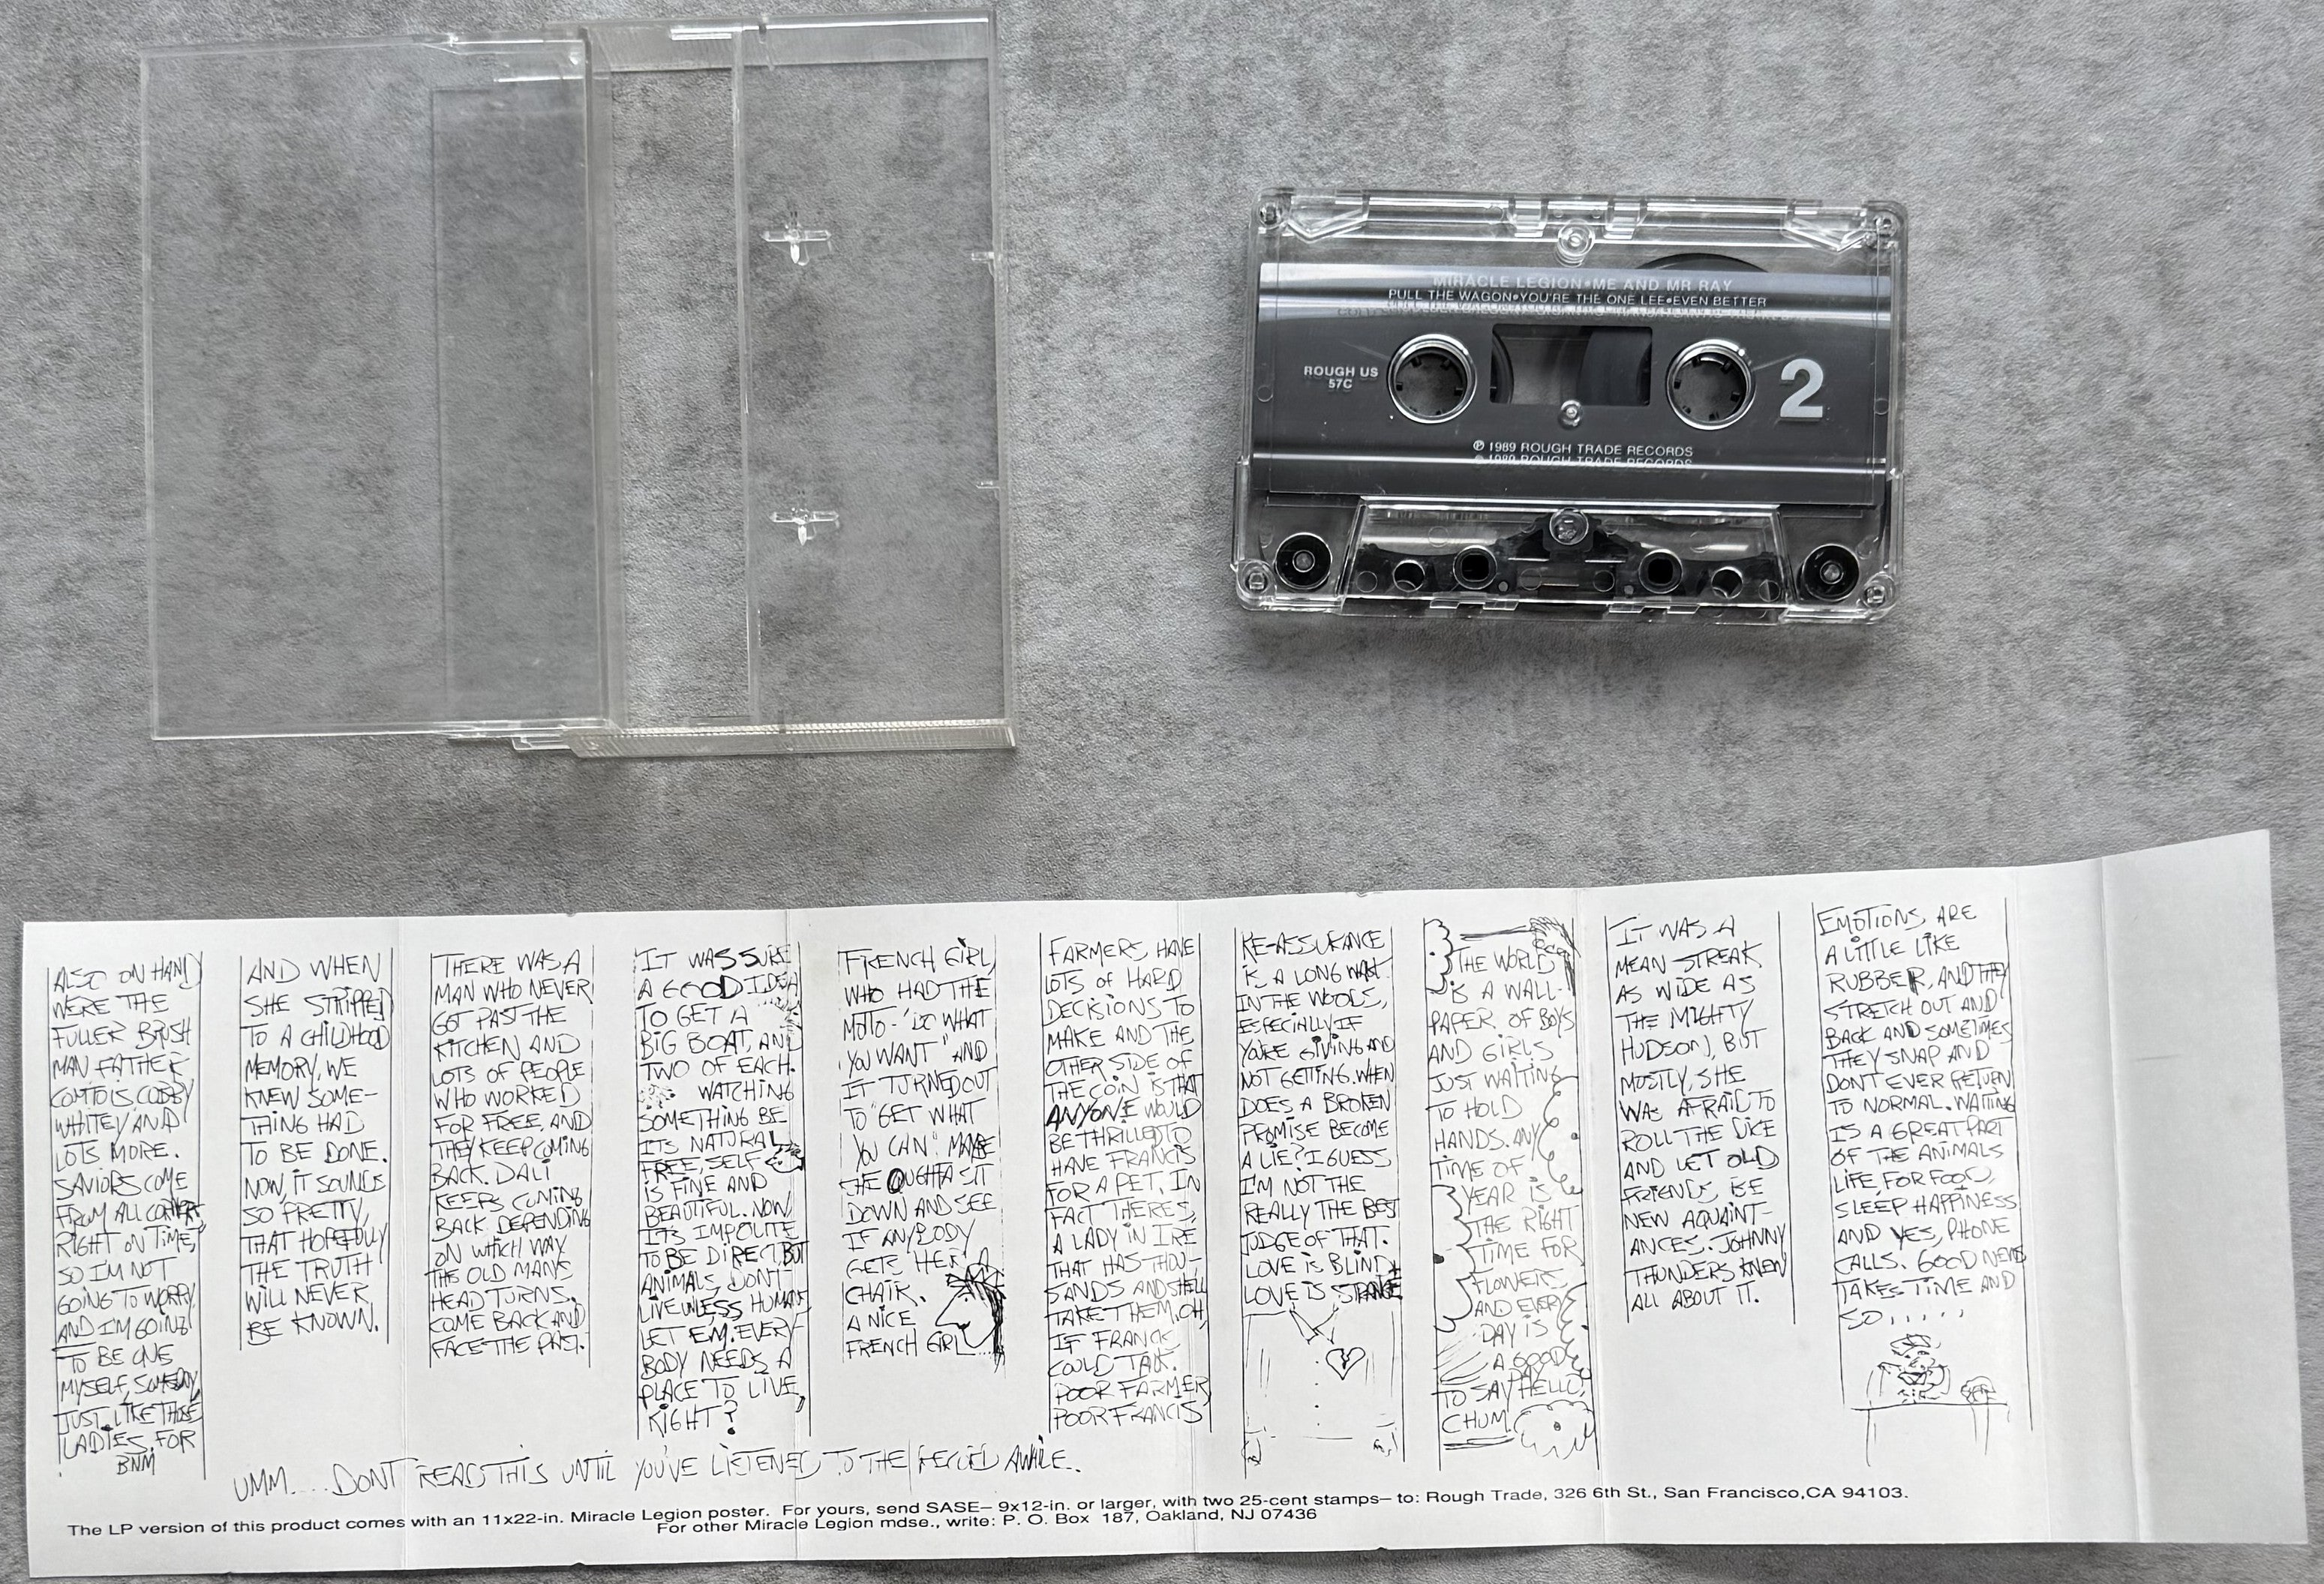 MIRACLE LEGION•ME AND MR RAY
PULL THE WAGON•YOU'RE THE ONE LEE•EVEN BETTER
ROUGH US
57C
2
℗ 1989 ROUGH TRADE RECORDS
© 1989 ROUGH TRADE RECORDS
ALSO ON HAND
WERE THE
FULLER BRUSH
MAN FATHER
COMTOIS CUBBY
WHITEY AND
LOTS MORE.
SAVIORS COME
FROM ALL CORNERS
RIGHT ON TIME,
SO I'M NOT
GOING TO WORRY,
AND I'M GOING
TO BE ONE
MYSELF, SOMEDAY,
JUST LIKE THOSE
LADIES. FOR
BNM
AND WHEN
SHE STRIPPED
TO A CHILDHOOD
MEMORY, WE
KNEW SOME-
THING HAD
TO BE DONE.
NOW, IT SOUNDS
SO PRETTY,
THAT HOPEFULLY
THE TRUTH
WILL NEVER
BE KNOWN.
THERE WAS A
MAN WHO NEVER
GOT PAST THE
KITCHEN AND
LOTS OF PEOPLE
WHO WORKED
FOR FREE, AND
THEY KEEP COMING
BACK. DALI
KEEPS COMING
BACK. DEPENDING
ON WHICH WAY
THE OLD MANS
HEAD TURNS.
COME BACK AND
FACE THE PAST.
IT WAS SURE
A GOOD IDEA
TO GET A
BIG BOAT, AND
TWO OF EACH.
WATCHING
SOMETHING BE
ITS NATURAL
FREE, SELF
IS FINE AND
BEAUTIFUL. NOW
ITS IMPOLITE
TO BE DIRECT, BUT
ANIMALS, DON'T
LIVE UNLESS HUMANS
LET EM. EVERY
BODY NEEDS A
PLACE TO LIVE,
RIGHT?
FRENCH GIRL,
WHO HAD THE
MOTTO - "DO WHAT
YOU WANT" AND
IT TURNED OUT
TO "GET WHAT
YOU CAN". MAYBE
SHE OUGHTA SIT
DOWN AND SEE
IF ANYBODY
GETS HER A
CHAIR.
A NICE
FRENCH GIRL
FARMERS, HAVE
LOTS OF HARD
DECISIONS TO
MAKE AND THE
OTHER SIDE OF
THE COIN IS THAT
ANYONE WOULD
BE THRILLED TO
HAVE FRANCIS
FOR A PET, IN
FACT THERES,
A LADY IN IRE
THAT HAS THOU-
SANDS AND SHE'LL
TAKE THEM, OH,
IF FRANCIS
COULD TALK.
POOR FARMER,
POOR FRANCIS
RE-ASSURANCE
IS A LONG WAY
IN THE WOODS,
ESPECIALLY IF
YOU'RE GIVING AND
NOT GETTING. WHEN
DOES A BROKEN
PROMISE BECOME
A LIE? I GUESS
I'M NOT THE
REALLY THE BEST
JUDGE OF THAT.
LOVE IS BLIND &
LOVE IS STRANGE
THE WORLD
IS A WALL-
PAPER OF BOYS
AND GIRLS
JUST WAITING
TO HOLD
HANDS. ANY
TIME OF
YEAR IS
THE RIGHT
TIME FOR
FLOWERS
AND EVERY
DAY IS
A GOOD
DAY
TO SAY HELLO,
CHUM.
IT WAS A
MEAN STREAK
AS WIDE AS
THE MIGHTY
HUDSON, BUT
MOSTLY, SHE
WAS AFRAID TO
ROLL THE DICE
AND LET OLD
FRIENDS, BE
NEW AQUAINT-
ANCES. JOHNNY
THUNDERS KNEW
ALL ABOUT IT.
EMOTIONS, ARE
A LITTLE LIKE
RUBBER, AND THEY
STRETCH OUT AND
BACK AND SOMETIMES
THEY SNAP AND
DON'T EVER RETURN
TO NORMAL. WAITING
IS A GREAT PART
OF THE ANIMALS
LIFE, FOR FOOD,
SLEEP, HAPPINESS
AND YES, PHONE
CALLS. GOOD NEWS
TAKES TIME AND
SO.....
UMM.... DON'T READ THIS UNTIL YOU'VE LISTENED TO THE RECORD AWHILE.
The LP version of this product comes with an 11x22-in. Miracle Legion poster. For yours, send SASE– 9x12-in. or larger, with two 25-cent stamps– to: Rough Trade, 326 6th St., San Francisco,CA 94103.
For other Miracle Legion mdse., write: P. O. Box 187, Oakland, NJ 07436